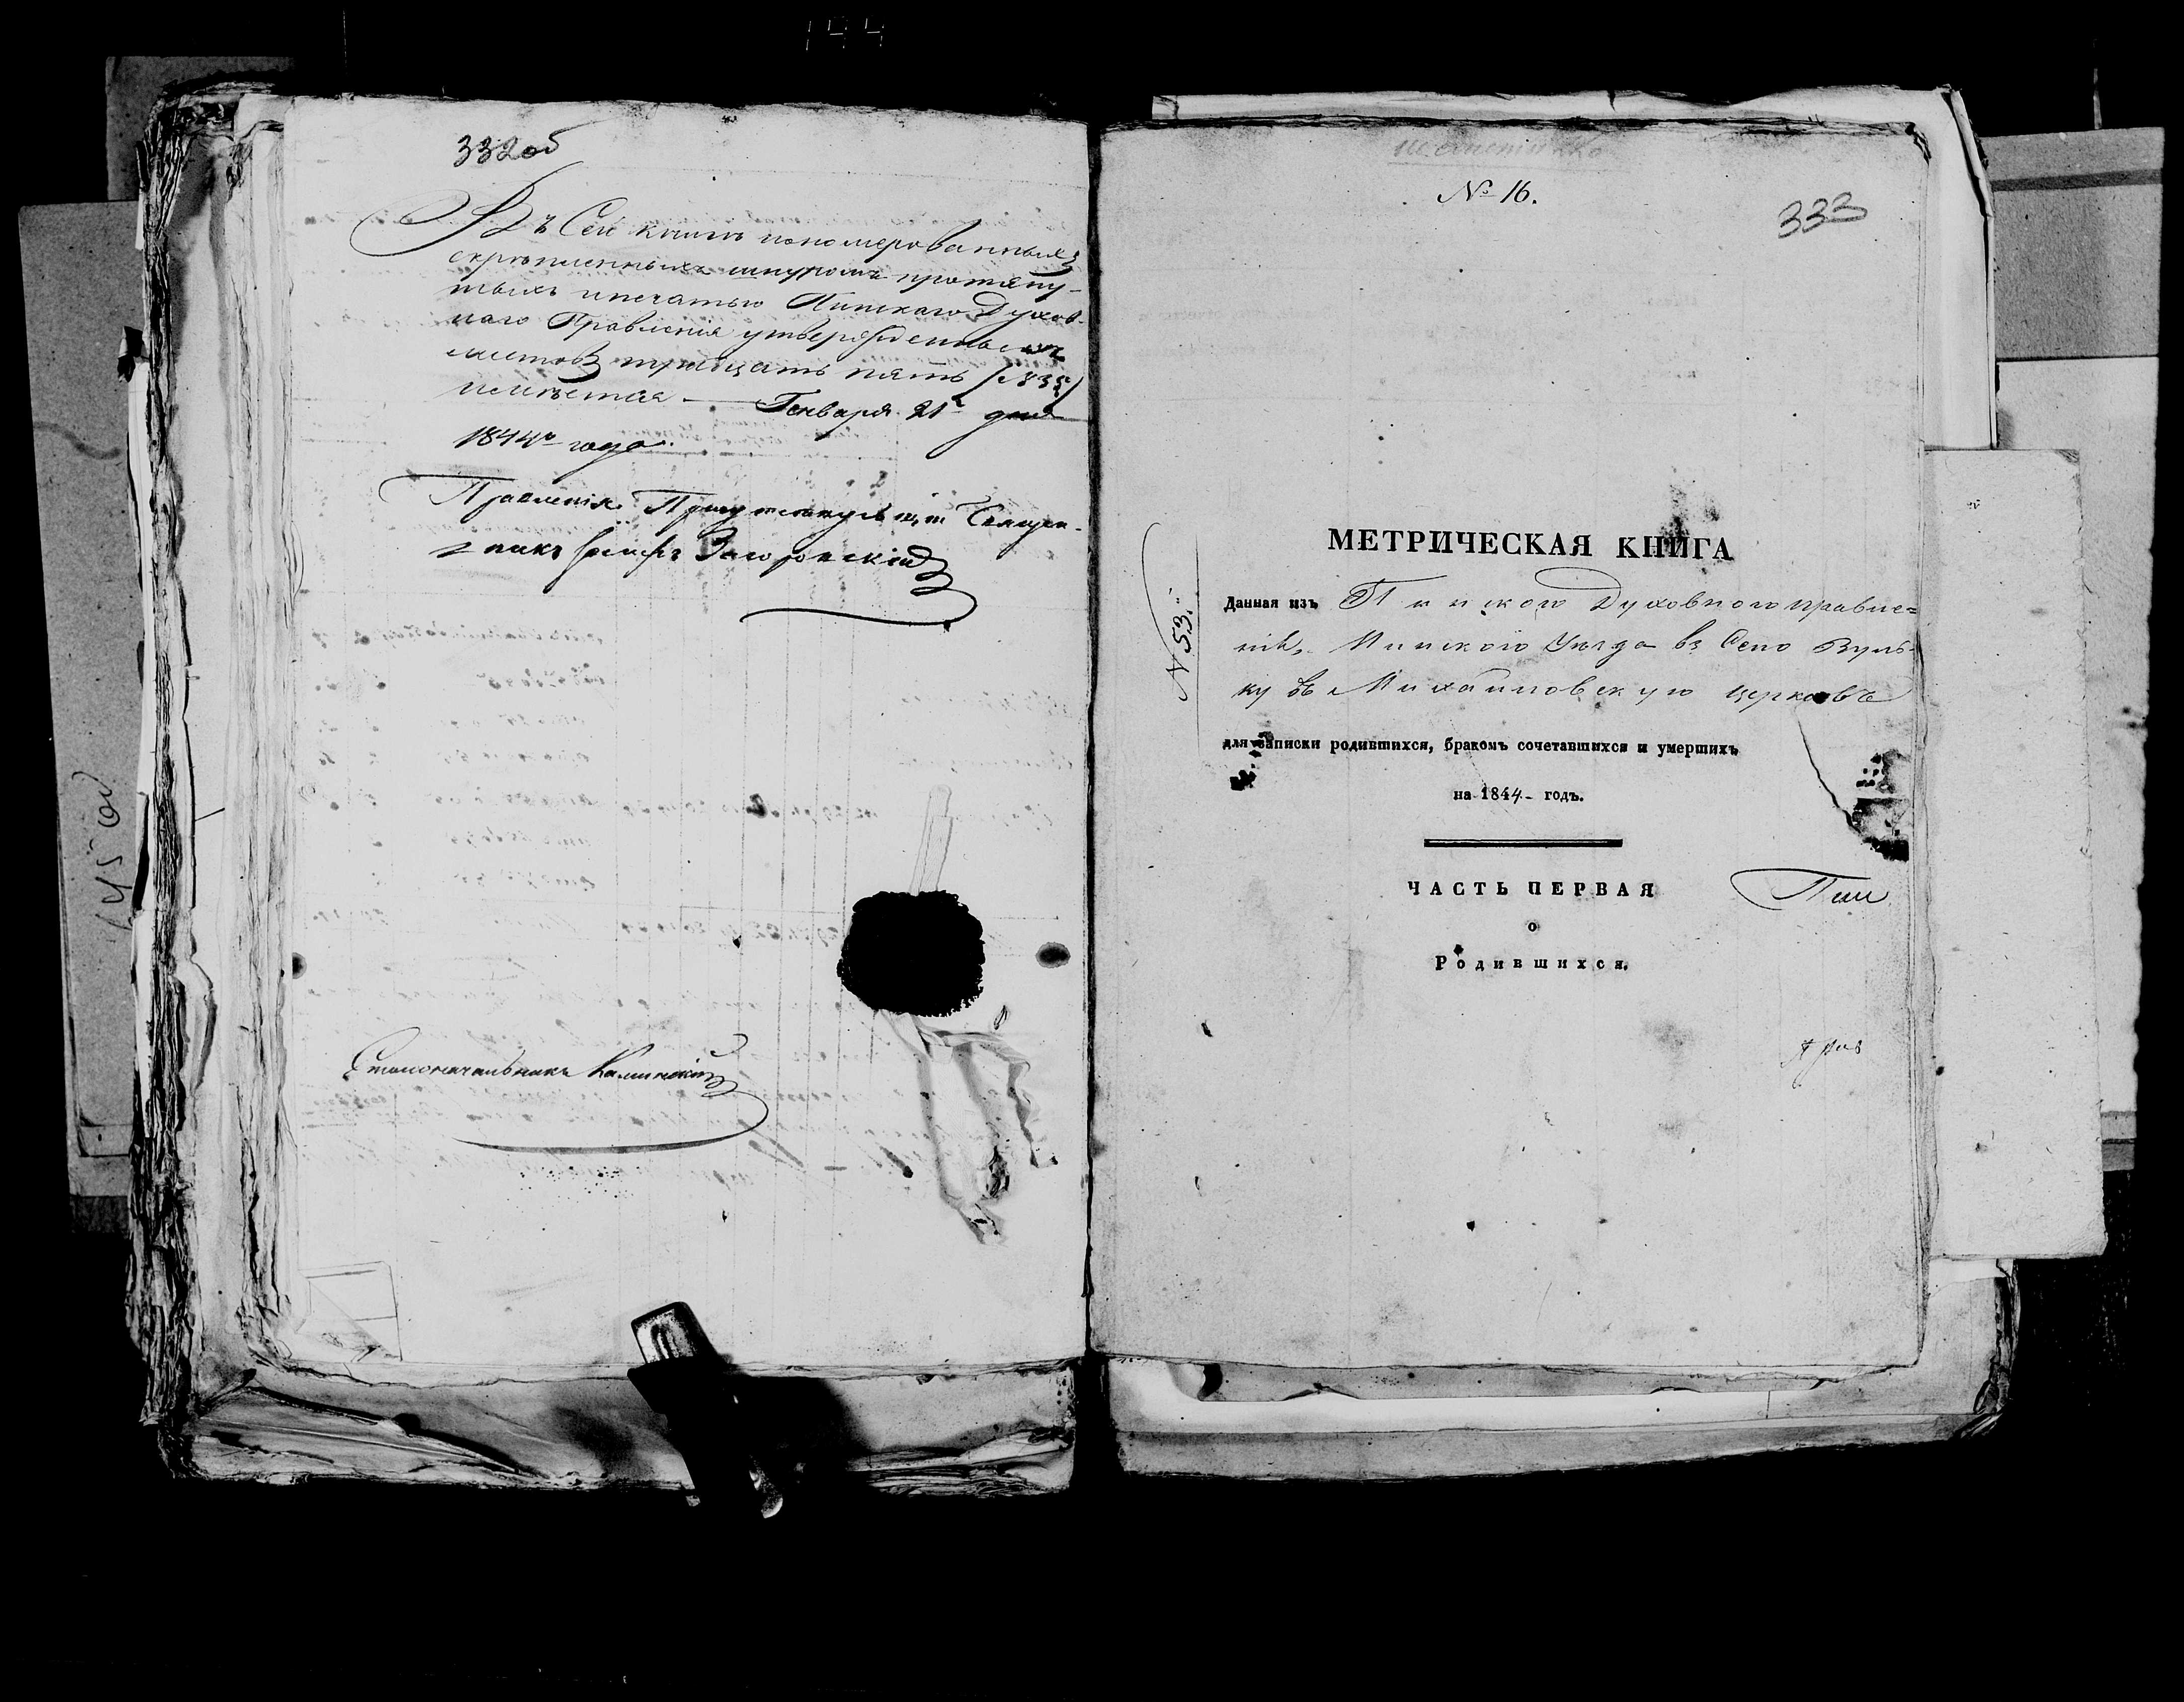 144
332об
Въ Сей книгѣ пономерованныхъ
скрѣпленныхъ шнуромъ протяну-
тыхъ и печатью Пинскаго Духов-
наго Правленія утвержденныхъ
листовъ тридцать пять (35)
имѣется — Генваря 21 дня
1844го года.
Правленія Присутствующій Священ-
никъ Іосифъ Загоровскій
Столоначальникъ Калинскій
№ 16.
333
№ 53.
МЕТРИЧЕСКАЯ КНИГА
Данная изъ Пинского Духовного правле=
нія, Пинского Уѣзда въ Село Вуль-
ку въ Михайловскую церковь
для записки родившихся, бракомъ сочетавшихся и умершихъ
на 1844 годъ.
ЧАСТЬ ПЕРВАЯ
Пин
о
Родившихся.